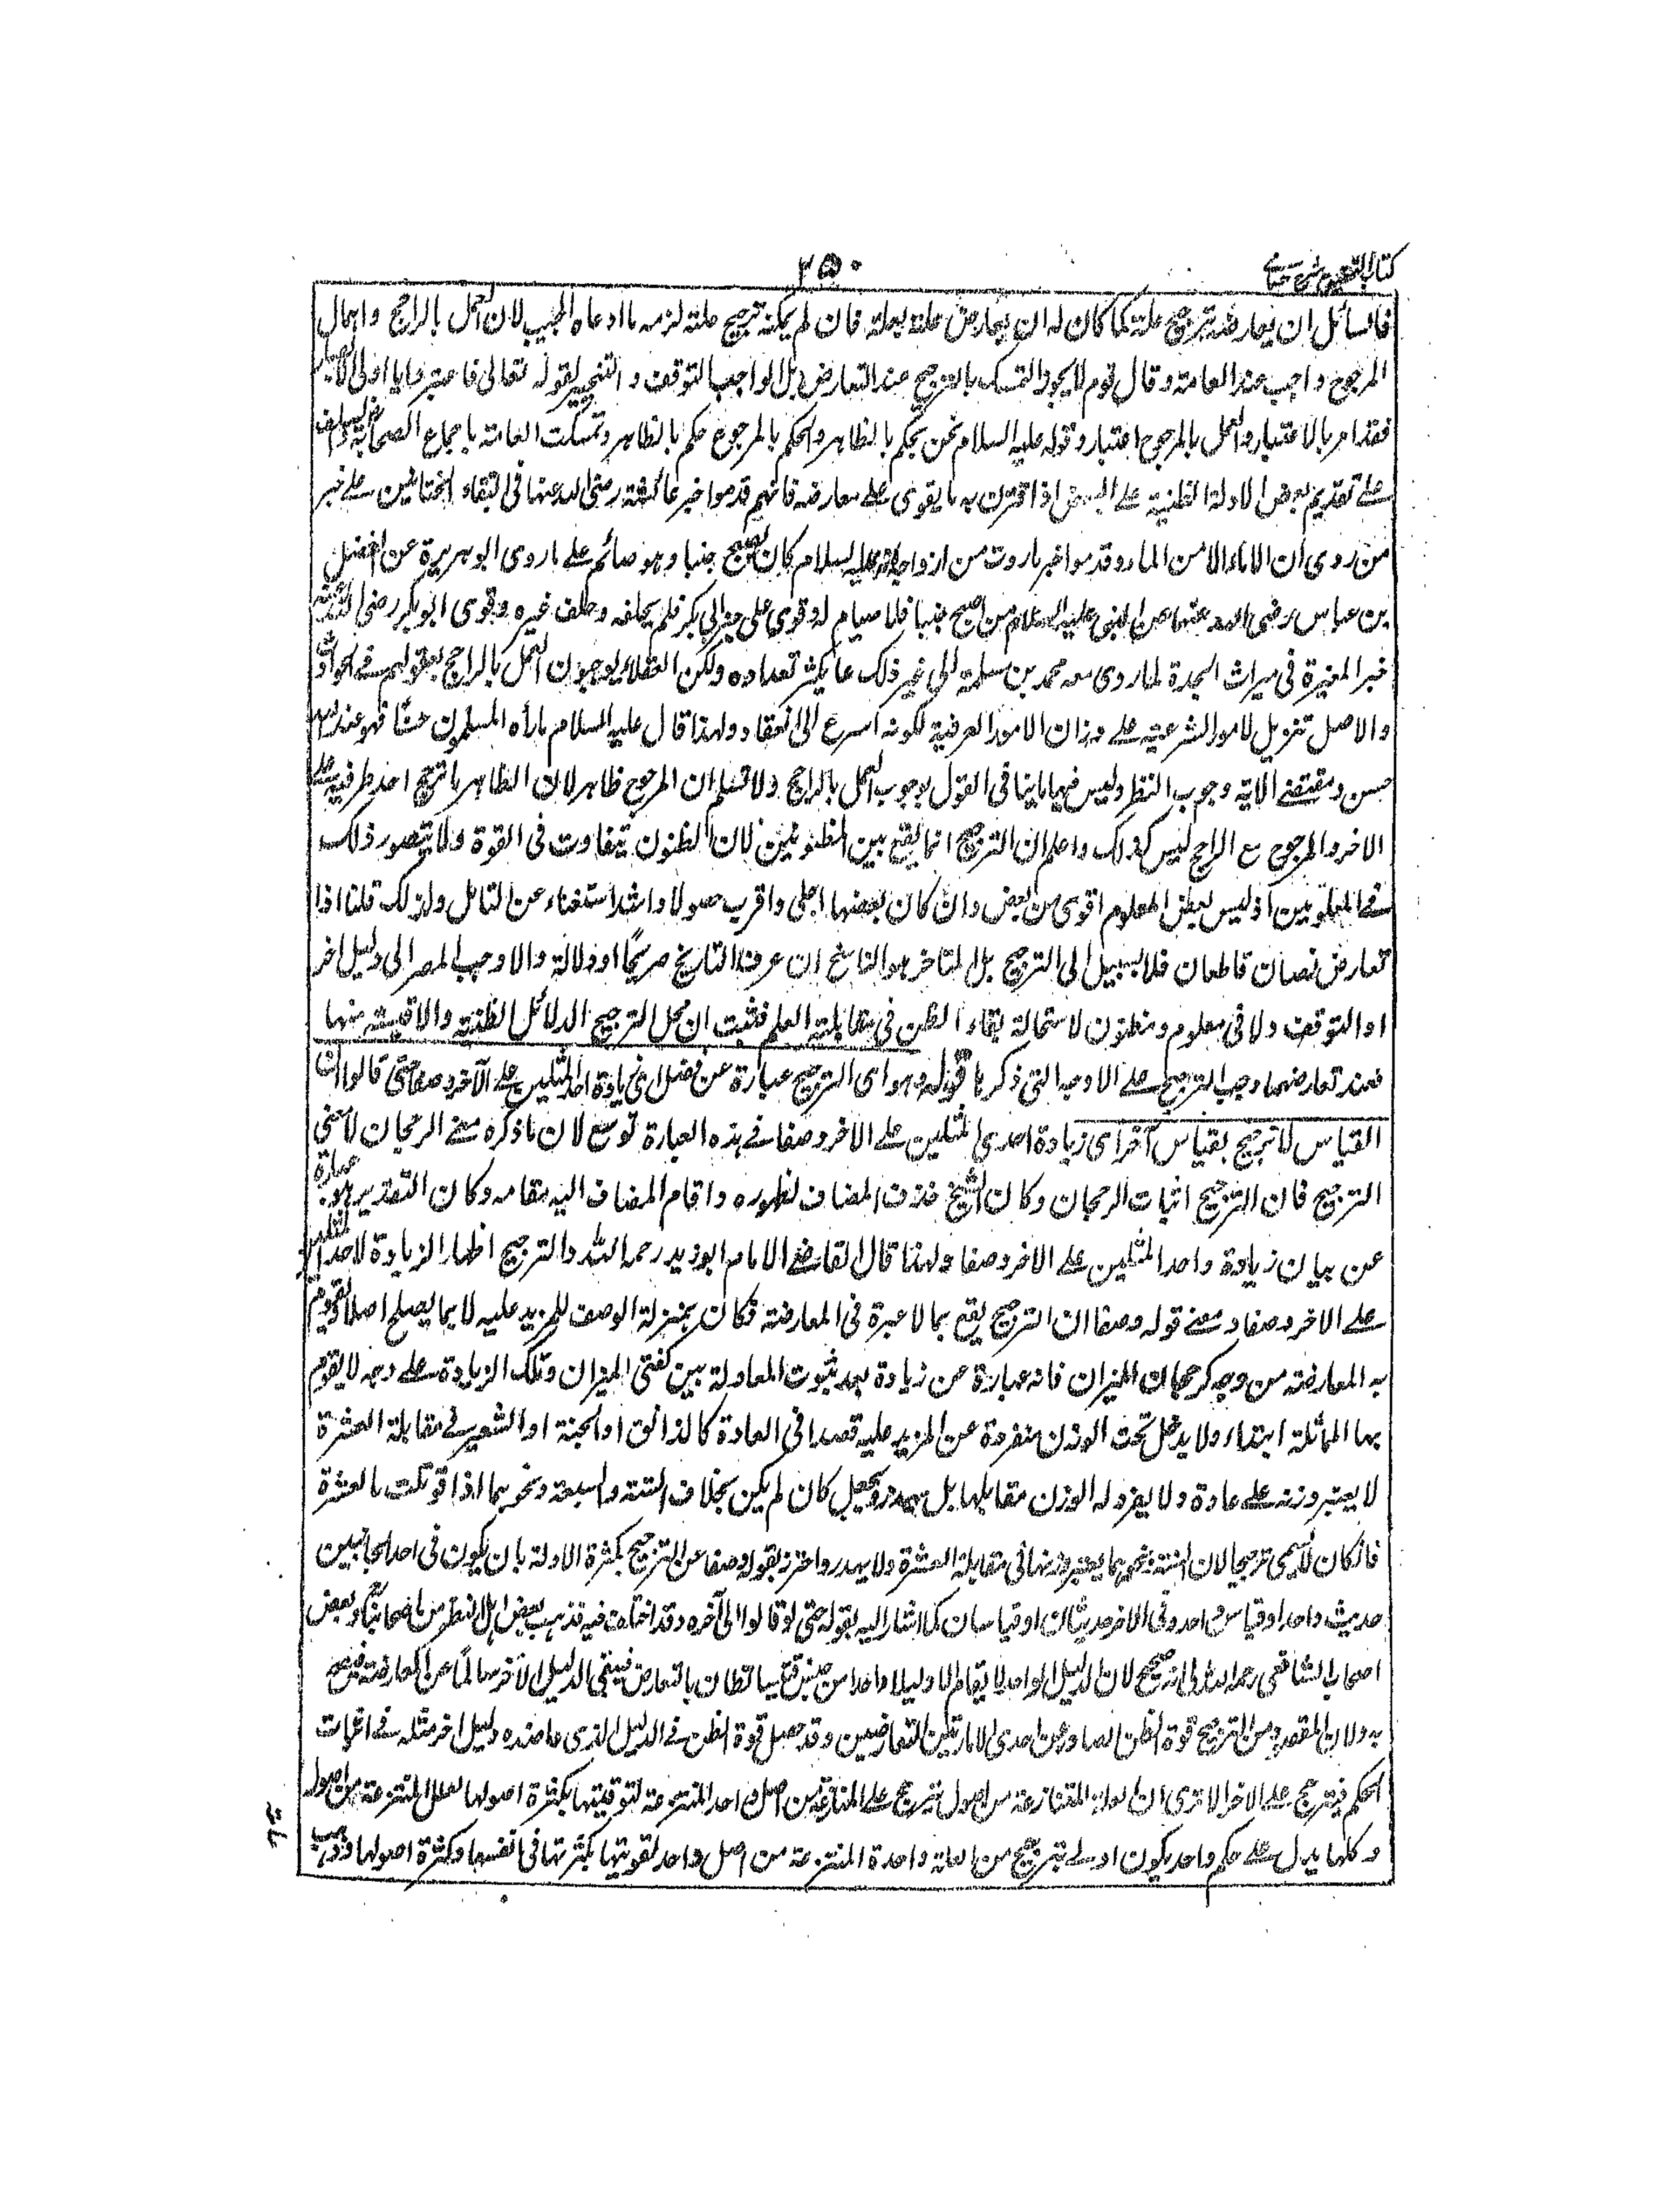 كتاب التحقيق شرح حسامی
٣٥٠
فللسائل ان يعارضه بترجيح علته كما كان له ان يعارض علته بعلة فان لم يمكنه ترجيح علته لزمه ما ادعاه المجيب لان العمل بالراجح واهمال
المرجوح واجب عند العامة وقال قوم لا يجوز التمسك بالترجيح عند التعارض بل الواجب التوقف و التخيير لقوله تعالى فاعتبروا يا اولى الابصار
فقد امر بالاعتبار والعمل بالمرجوح اعتبار وقوله عليه السلام نحن نحكم بالظاهر والحكم بالمرجوح حكم بالظاهر وتمسكت العامة باجماع الصحابة والسلف
على تقديم بعض الادلة الظنية على البعض اذا اقترن به ما يقوى على معارضه فانهم قدموا خبر عائشة رضى الله عنها فى التقاء الختانين على خبر
من روى ان لا ماء الا من الماء وقدموا خبر ما روت من ازواجه انه عليه السلام كان يصبح جنبا وهو صائم على ما روى ابو هريرة عن الفضل
بن عباس رضى الله عنهما عن النبى عليه السلام من اصبح جنبا فلا صيام له وقوى على خبر ابى بكر فلم يحلفه وحلف غيره وقوى ابو بكر رضى الله عنه
خبر المغيرة فى ميراث الجدة لما روى معه محمد بن مسلمة الى غير ذلك مما يكثر تعداده ولكن العقلاء يوجبون العمل بالراجح بعقولهم فى الحوادث
والاصل تنزيل الامور الشرعية على وزان الامور العرفية لكونه اسرع الى الانقياد ولهذا قال عليه السلام ما رأه المسلمون حسنا فهو عند الله
حسن ومقتضى الاية وجوب النظر وليس فيها ما ينافى القول بوجوب العمل بالراجح ولا نسلم ان المرجوح ظاهر لان الظاهر ما ترجح احد طرفيه على
الاخر والمرجوح مع الراجح ليس كذلك واعلم ان الترجيح انما يقع بين المظنونين لان الظنون تتفاوت فى القوة ولا يتصور ذلك
فى المعلومين اذ ليس بعض المعلوم اقوى من بعض وان كان بعضها اجلى واقرب حصولا واشد استغناء عن التامل ولذلك قلنا اذا
تعارض نصان قاطعان فلا سبيل الى الترجيح بل المتاخر هو الناسخ ان عرف التاريخ صريحا او دلالة والا وجب المصر الى دليل اخر
او التوقف ولا فى معلوم ومظنون لاستحالة بقاء الظن فى مقابلة العلم فثبت ان محل الترجيح الدلائل الظنية والاقيسة منها
فعند تعارضهما وجب الترجيح على الاوجه التى ذكرها قوله وهو اى الترجيح عبارة عن فضل اى زيادة احد المثلين على الآخر وصفا حتى قالوا ان
القياس لا ترجيح بقياس آخر اى زيادة احدى المثلين على الاخر وصفا فى هذه العبارة توسع لان ما ذكره معنى الرجحان لا معنى
الترجيح فان الترجيح اثبات الرجحان وكان الشيخ حذف المضاف لظهوره واقام المضاف اليه مقامه وكان التقدير هو عبارة
عن بيان زيادة واحد المثلين على الاخر وصفا ولهذا قال القاضى الامام ابو زيد رحمه الله والترجيح اظهار الزيادة لاحد المثلين
على الاخر وصفا ومعنى قوله وصفا ان الترجيح يقع بما لا عبرة فى المعارضة فكان بمنزلة الوصف للمزيد عليه لا بما يصلح اصلا لقوم
به المعارضة من وجه كرجحان الميزان فانه عبارة عن زيادة بعد ثبوت المعادلة بين كفتى الميزان وتلك الزيادة على وجه لا يقوم
بها المماثلة ابتداء ولا يدخل تحت الوزن منفردة عن المزيد عليه قصدا فى العادة كالدانق او الحبة او الشعير فى مقابلة العشرة
لا يعتبر وزنه على عادة ولا يفرد له الوزن مقابلها بل يهدر ويجعل كان لم يكن بخلاف الستة والسبعة ونحوهما اذا قوبلت بالعشرة
فانه كان لا يسمى ترجيحا لان الستة ونحوهما يعتبر وزنها فى مقابلة العشرة ولا يهدر واحترز بقوله وصفا عن الترجيح بكثرة الادلة بان يكون فى احد الجانبين
حديث واحد او قياس واحد وفى الاخر حديثان او قياسان كما اشار اليه بقوله حتى لو قالوا الى آخره وقد اختلف فيه فذهب بعض اهل النظر من اصحابنا وبعض
اصحاب الشافعى رحمه الله الى انه صحيح لان الدليل الواحد لا يقاوم الا دليلا واحدا من جنبه فيتساقطان بالتعارض فيبقى الدليل الآخر سالما عن المعارضة فيصح
به ولان المقصود من الترجيح قوة الظن الصادر عن احدى الامارتين المتعارضتين وقد حصل قوة الظن فى الدليل الذى عاضده دليل اخر مثله فى اثبات
الحكم فيترجح على الاخر الا ترى ان العلة المتنازعة من اصول يترجح على المنتزعة من اصل واحد المنتزعة لتقويتها بكثرة اصولها العلل المنتزعة من اصول
وكلها يدل على حكم واحد يكون اولى بترجيح من العلة واحدة المنتزعة من اصل واحد لقوتها بكثرتها فى انفسها وكثرة اصولها وذهب